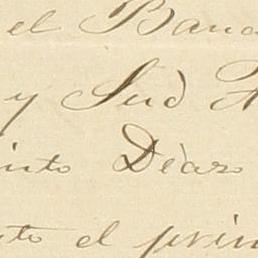 el Banc
y Sud A
into Diaz
te el prin